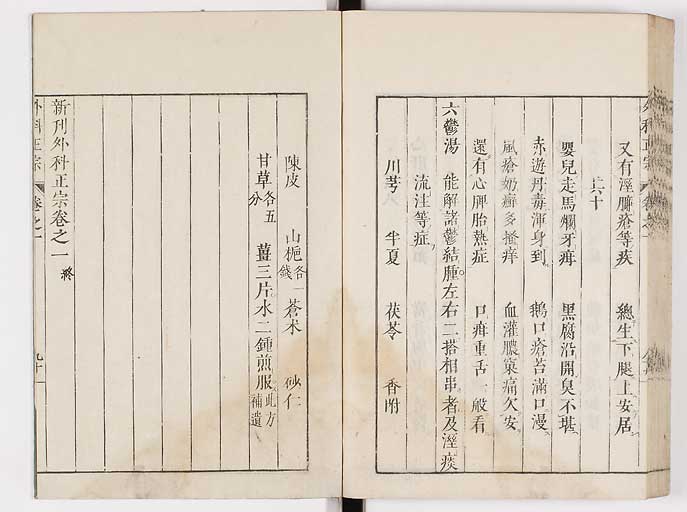 又有溼臁瘡等疾 總生下腿上安居
其十
嬰兒走馬爛牙疳 黑腐沿開臭不堪
赤遊丹毒渾身到 鵝口瘡苔滿口漫
風瘡奶癬多搔痒 血灌膿窠痛欠安
還有心脾胎熱症 口疳重舌一般看
六鬱湯 能解諸鬱結腫左右二搭相串者及溼痰
流注等症
川芎 半夏 茯苓 香附
陳皮 山梔各一錢 蒼朮 砂仁
甘草各五分 薑三片水二鍾煎服此方補遺
新刊外科正宗卷之一終
外科正宗 卷之一 九十一